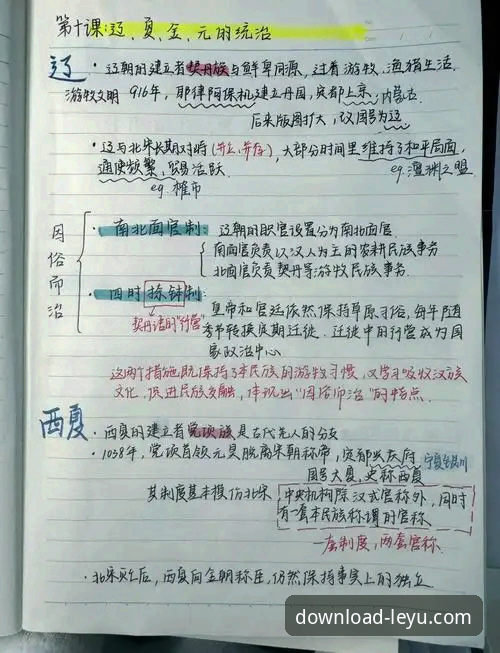 第十课:辽、夏、金、元的统治
辽 · 辽朝的建立者契丹族与鲜卑同源,过着游牧、渔猎生活,
游牧文明 916年,耶律阿保机建立丹国,定都上京,内蒙古.
后来版图扩大,改国号为辽
· 辽与北宋长期对峙(并立,并存),大部分时间里维持了和平局面,
通使频繁,贸易活跃. eg.澶渊之盟
eg.榷市
因俗而治
· 南北面官制: 辽朝的职官设置分为南北面官
南面官负责以汉人为主的农耕民族事务
北面官负责契丹等游牧民族事务.
· 四时捺钵制: 皇帝和宫廷依然保持草原习俗,每年随
契丹语的“行营” 季节转换定期迁徙.迁徙中的行营成为国
家政治中心
这两个措施既保持了本民族的游牧习惯,又学习吸收汉族
文化,促进民族交融,体现出“因俗而治”的特点.
西夏 · 西夏的建立者党项族是古代羌人的分支
· 1038年,党项首领元昊脱离宋朝称帝,定都兴庆府 宁夏银川
国号大夏,史称西夏
其制度基本模仿北宋 中央机构除汉式官称外,同时
有一套本民族称谓的官称
一套制度,两套官称.
· 北宋灭亡后,西夏向金朝称臣,仍然保持事实上的独立
download-leyu.com